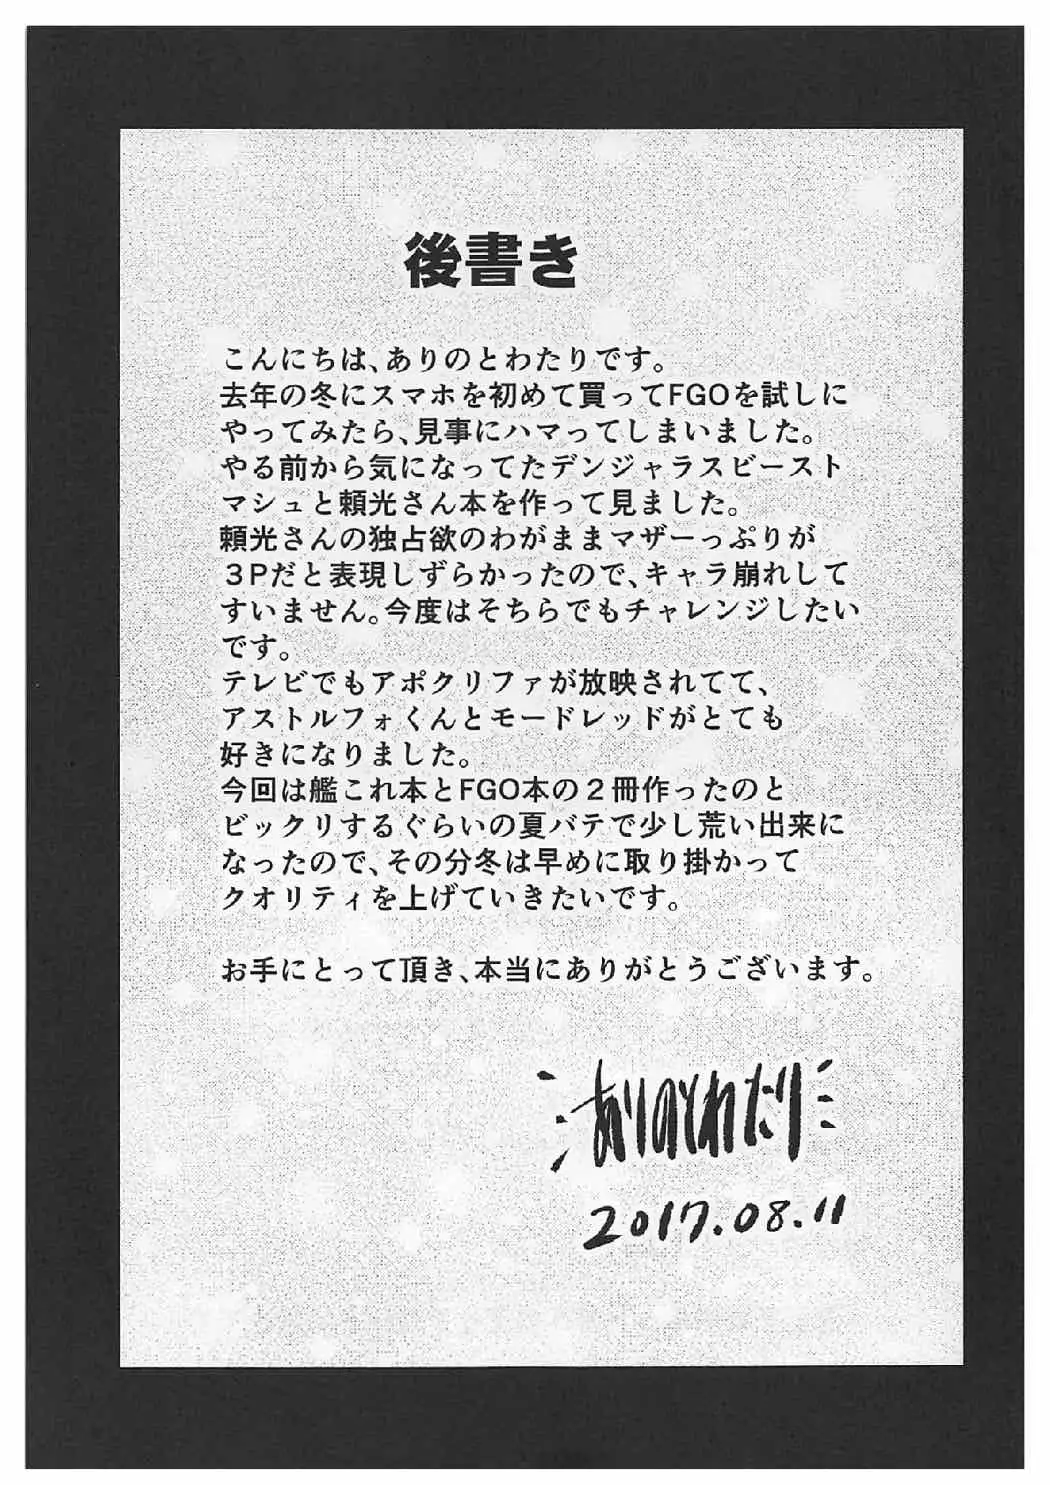 後書き
こんにちは、ありのとわたりです。
去年の冬にスマホを初めて買ってFGOを試しに
やってみたら、見事にハマってしまいました。
やる前から気になってたデンジャラスビースト
マシュと頼光さん本を作って見ました。
頼光さんの独占欲のわがままマザーっぷりが
３Pだと表現しずらかったので、キャラ崩れして
すいません。今度はそちらでもチャレンジしたい
です。
テレビでもアポクリファが放映されてて、
アストルフォくんとモードレッドがとても
好きになりました。
今回は艦これ本とFGO本の２冊作ったのと
ビックリするぐらいの夏バテで少し荒い出来に
なったので、その分冬は早めに取り掛かって
クオリティを上げていきたいです。
お手にとって頂き、本当にありがとうございます。
ありのとわたり
2017.08.11